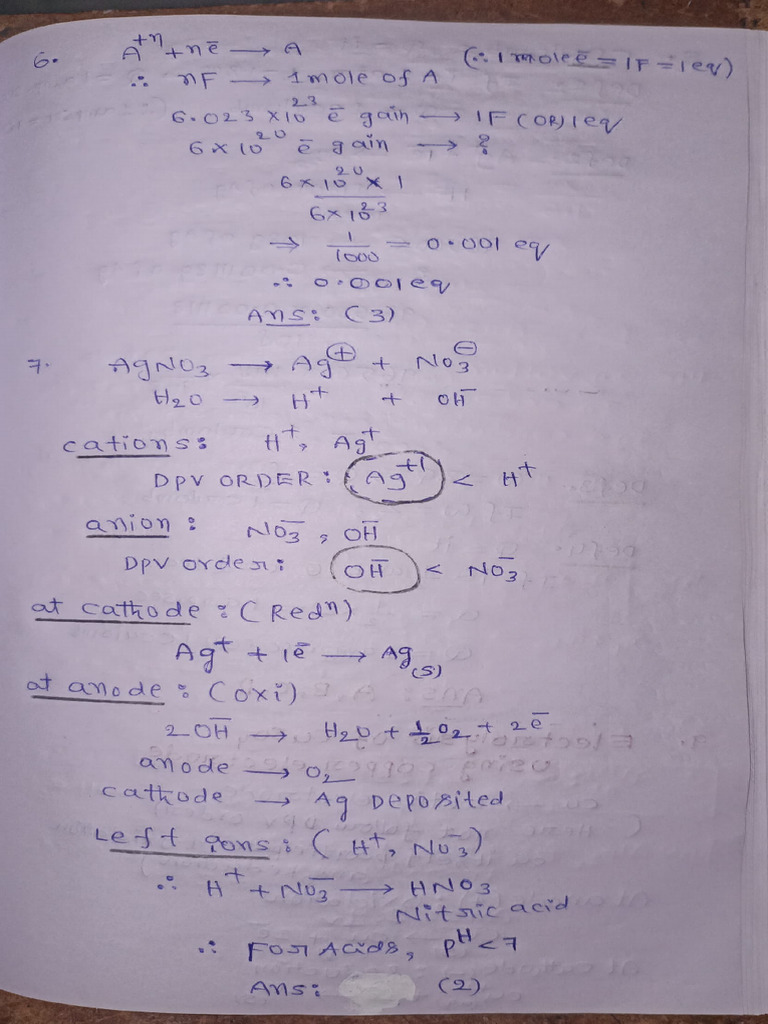 6. A⁺ⁿ + nē → A (∴ 1 mole ē = 1F = 1eq)
∴ nF → 1 mole of A
6.023 × 10²³ ē gain → 1F (OR) 1eq
6 × 10²⁰ ē gain → ?
6 × 10²⁰ × 1
6 × 10²³
⇒ 1/1000 = 0.001 eq
∴ 0.001 eq
Ans: (3)
7. AgNO₃ → Ag⊕ + NO₃⊖
H₂O → H⁺ + OH⁻
cations: H⁺, Ag⁺
DPV ORDER: Ag⁺¹ < H⁺
anion: NO₃⁻, OH⁻
DPV order: OH⁻ < NO₃⁻
at cathode: (Redⁿ)
Ag⁺ + 1ē → Ag(s)
at anode: (oxi)
2OH⁻ → H₂O + ½O₂ + 2ē
anode → O₂
cathode → Ag Deposited
Left ions: (H⁺, NO₃⁻)
∴ H⁺ + NO₃⁻ → HNO₃
Nitric acid
∴ For Acids, pH < 7
Ans: (2)